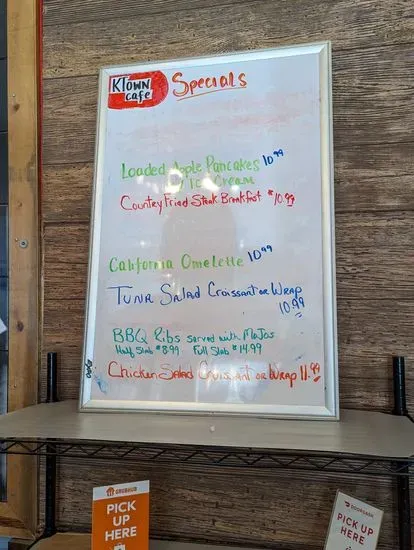 KTOWN
cafe
Specials
Loaded Apple Pancakes 10.99
w/ Ice Cream
Country Fried Steak Breakfast $10.99
California Omelette 10.99
Tuna Salad Croissant or Wrap
10.99
BBQ Ribs served with MoJos
Half Slab $8.99 Full Slab $14.99
Chicken Salad Croissant or Wrap 11.99
GRUBHUB
PICK
UP
HERE
DOORDASH
PICK UP
HERE